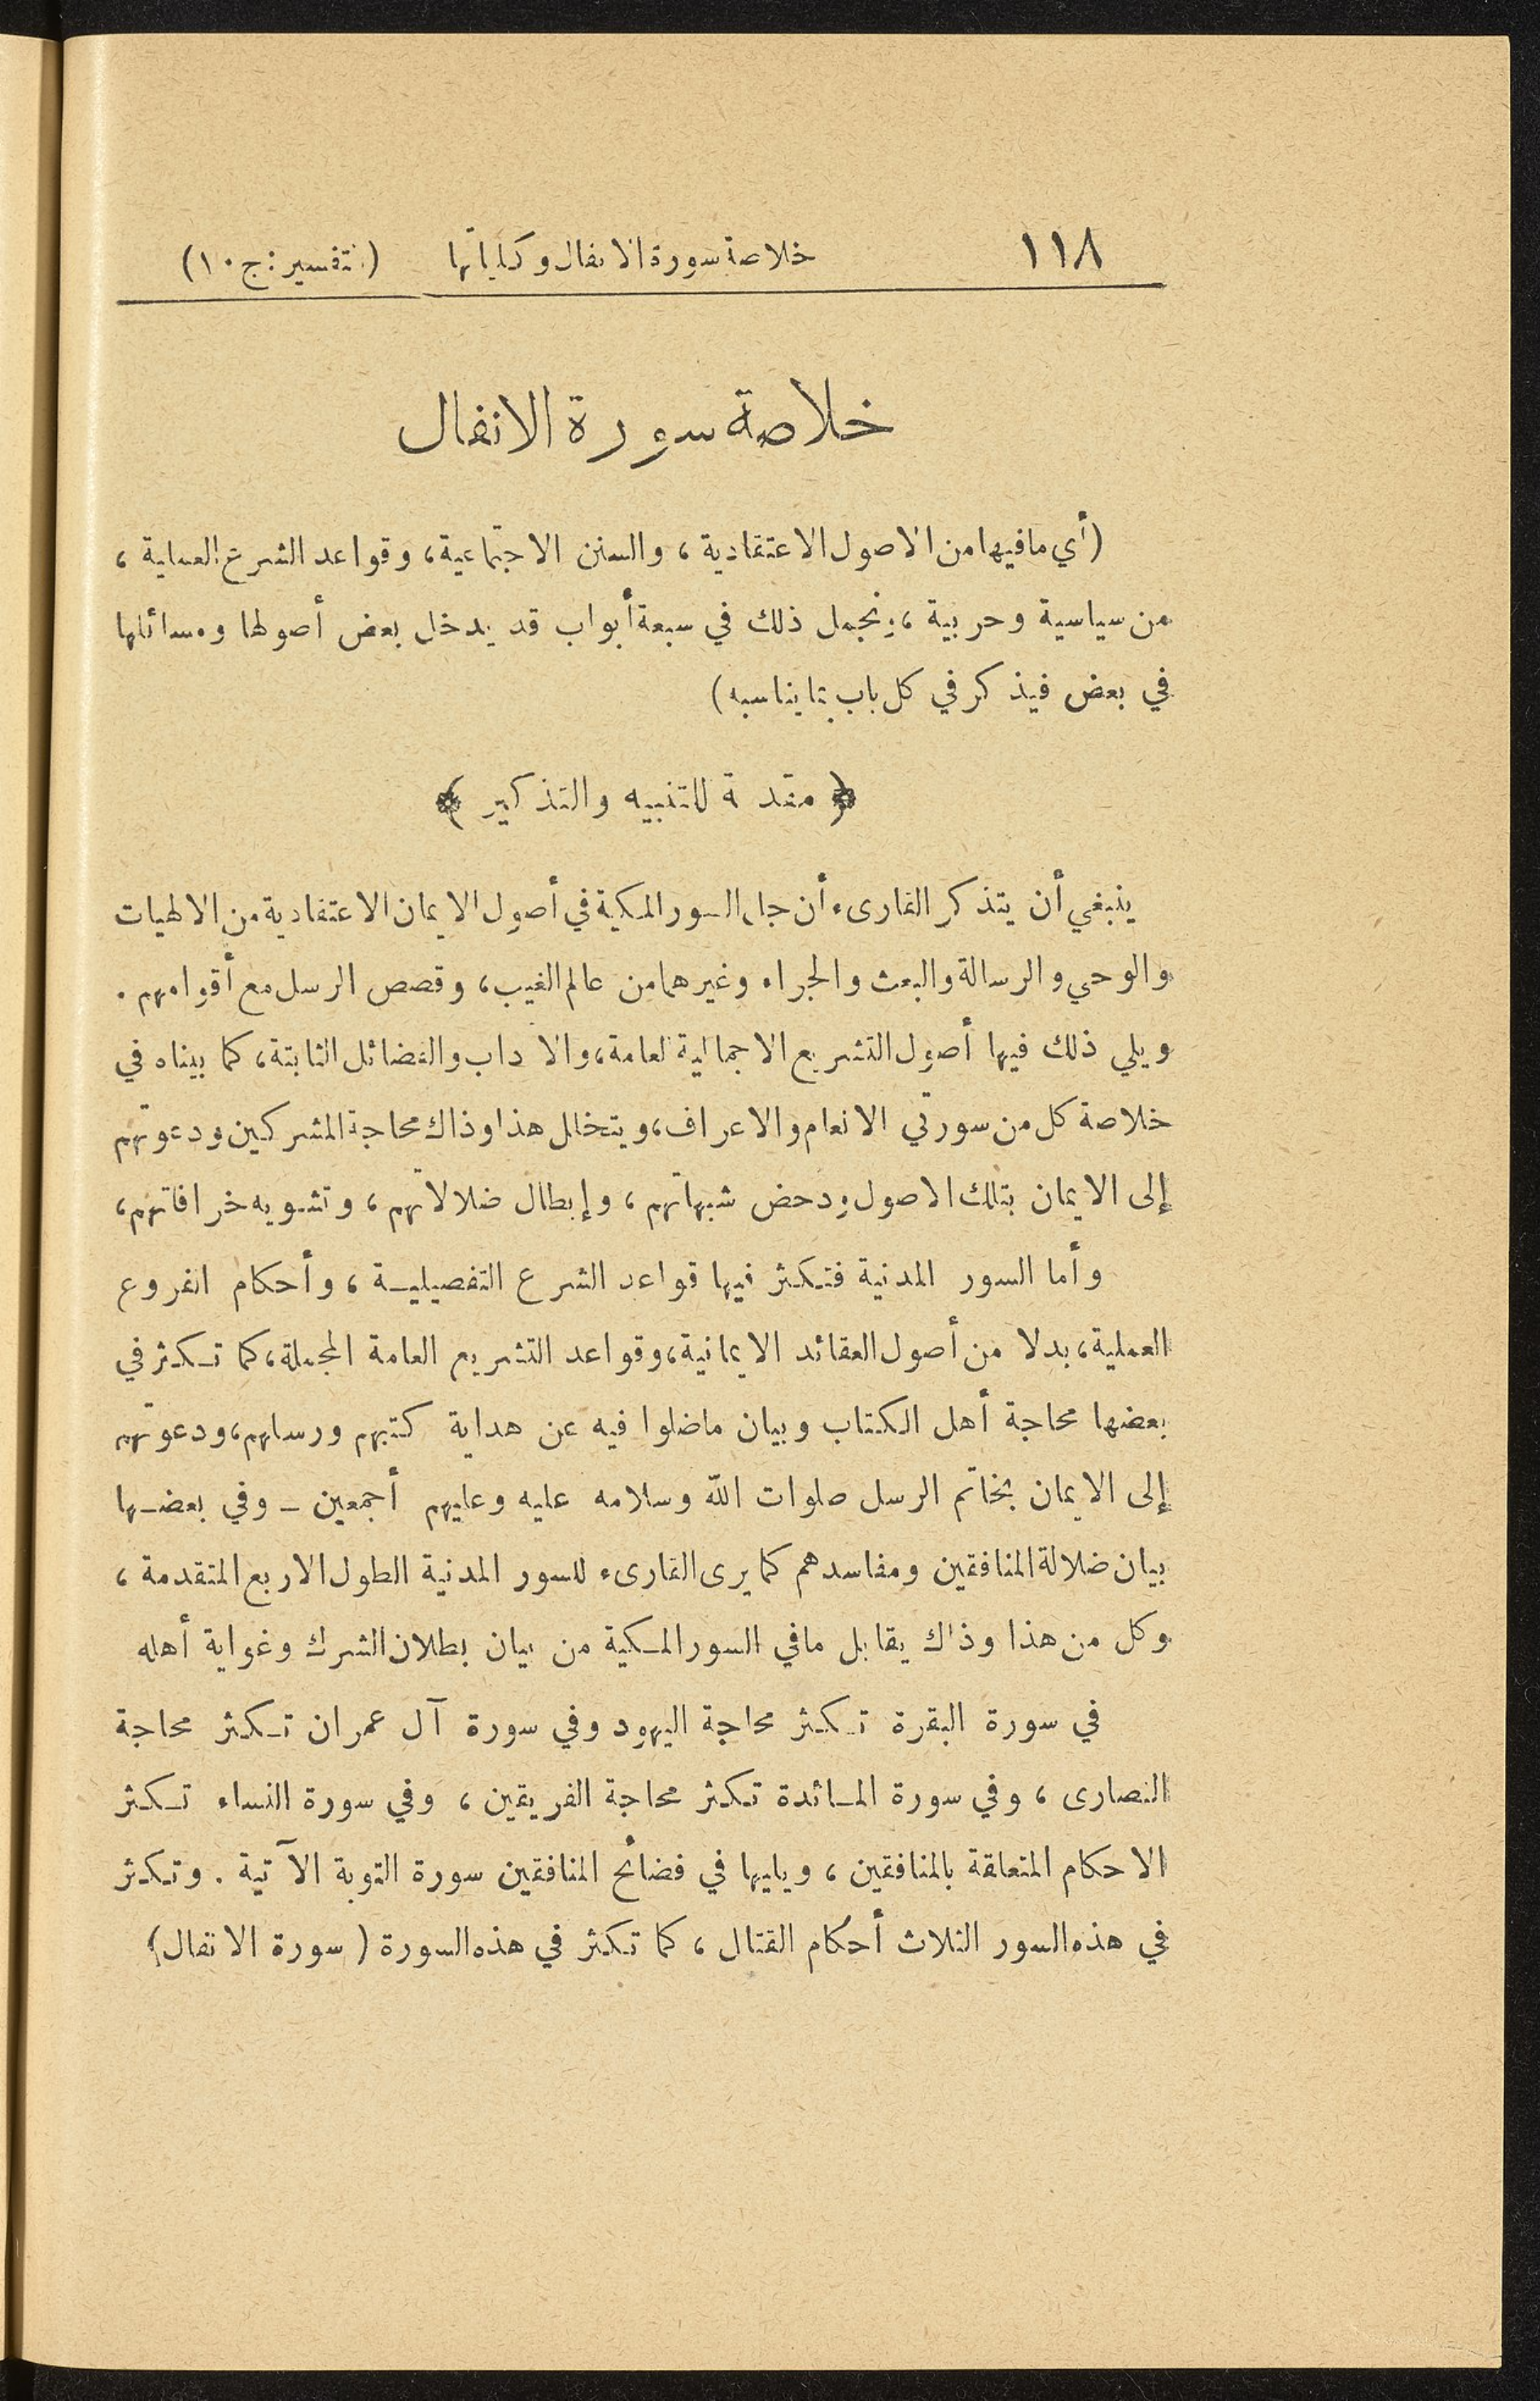 ١١٨ خلاصة سورة الانفال وكلياتها (تفسير: ج ١٠)
خلاصة سورة الانفال
(أي ما فيها من الاصول الاعتقادية، والسنن الاجتماعية، وقواعد الشرع العملية،
من سياسية وحربية، ونجمل ذلك في سبعة أبواب قد يدخل بعض أصولها ومسائلها
في بعض فيذكر في كل باب ما يناسبه)
﴿ مقدمة للتنبيه والتذكير ﴾
ينبغي أن يتذكر القارىء أن جل السور المكية في أصول الايمان الاعتقادية من الالهيات
والوحي والرسالة والبعث والجزاء وغيرهما من عالم الغيب، وقصص الرسل مع أقوامهم.
ويلي ذلك فيها أصول التشريع الاجمالية العامة، والآداب والفضائل الثابتة، كما بيناه في
خلاصة كل من سورتي الانعام والاعراف، ويتخلل هذا وذاك محاجة المشركين ودعوتهم
إلى الايمان بتلك الاصول ودحض شبهاتهم، وإبطال ضلالاتهم، وتشويه خرافاتهم،
وأما السور المدنية فتكثر فيها قواعد الشرع التفصيلية، وأحكام الفروع
العملية، بدلا من أصول العقائد الايمانية، وقواعد التشريع العامة المجملة، كما تكثر في
بعضها محاجة أهل الكتاب وبيان ما ضلوا فيه عن هداية كتبهم ورسلهم، ودعوتهم
إلى الايمان بخاتم الرسل صلوات الله وسلامه عليه وعليهم أجمعين - وفي بعضها
بيان ضلالة المنافقين ومفاسدهم كما يرى القارىء للسور المدنية الطول الاربع المتقدمة،
وكل من هذا وذاك يقابل ما في السور المكية من بيان بطلان الشرك وغواية أهله
في سورة البقرة تكثر محاجة اليهود وفي سورة آل عمران تكثر محاجة
النصارى، وفي سورة المائدة تكثر محاجة الفريقين، وفي سورة النساء تكثر
الاحكام المتعلقة بالمنافقين، ويليها في فضائح المنافقين سورة التوبة الآتية. وتكثر
في هذه السور الثلاث أحكام القتال، كما تكثر في هذه السورة (سورة الانفال)